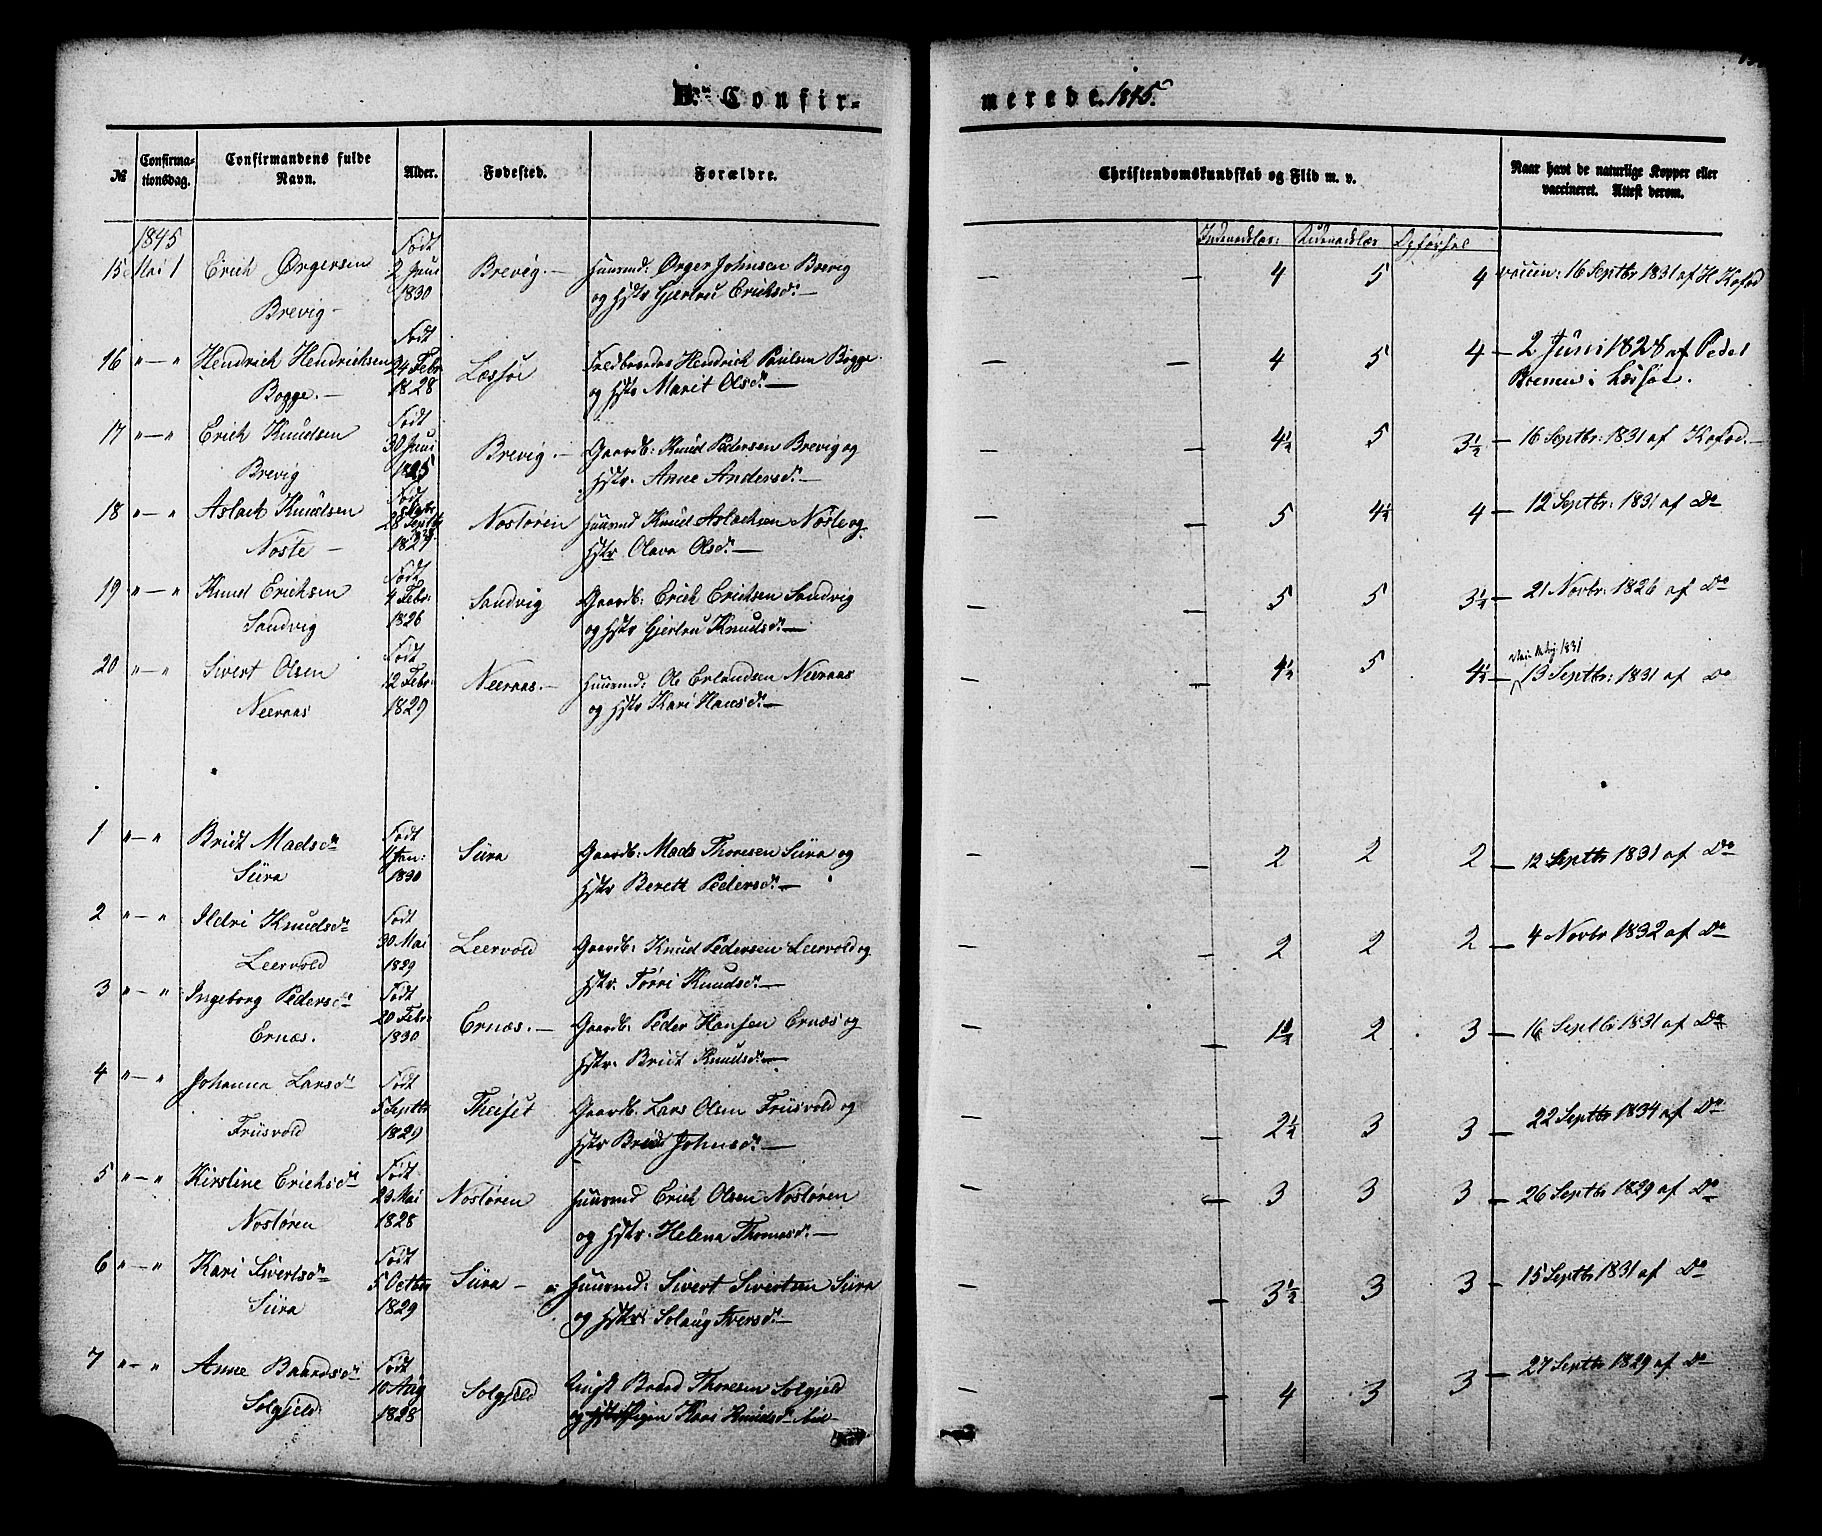 B. Confirmerede. 1845.
№ | Confirmationsdag. | Confirmandens fulde Navn. | Alder. | Fødested. | Forældre. | Christendomskundskab og Flid m. v. | Naar havt de naturlige Kopper eller vaccineret. Attest derom.
1845 Født
15 Mai 1 Erich Ørgersen 2 Juni Brevig.— Huusmd: Ørger Johnsen Brevig — — 4 5 4 vaccin: 16 Septbr 1831 af H Kofod
Brevig— 1830 og Hstr Gjertru Erichsd.—
Født
16 "—" Hendrich Hendrichsen 24 Febr Læssøe Hendrich Paulsen Bogge — — 4 5 4 — 2 Juni 1828 af Peder
Bogge.— 1828 og Hstr Marit Olsd.— i Læssøe.
Født
17 "—" Erich Knudsen 30 Juni Brevig.— Gaardb: Knud Pedersen Brevig og — — 4½ 5 3½ — 16 Septbr: 1831 af Kofod.—
Brevig Hstr. Anne Andersd.—
Født
18 "—" Aslach Knudsen 28 Septbr Nostøren Huusmd Knud Aslachsen Noste og — — 5 4½ 4 — 12 Septbr: 1831 af Do
Noste— 1829 Hstr Olava Olsd.—
Født
19 "—" Knud Erichsen 4 Febr: Sandvig Gaardb: Erich Erichsen Sandvig — — 5 5 3½ — 21 Novbr: 1826 af Do
Sandvig 1826 og Hstr Gjertru Knudsd.—
Født
20 "—" Sivert Olsen 12 Febr: Neeraas.— Huusmd: Ole Erlandsen Neeraas — — 4½ 5 4½ — 13 Septbr: 1831 af Do
Neeraas 1829 og Hstr Kari Hansd.—
Født
1 "—" Bridt Madsd. Jan: Siira Gaardb: Mads Thoresen Siira og — — 2 2 2 — 12 Septbr 1831 af Do
Siira 1830 Hstr Berett Pedersd.—
Født
2 "—" Ildri Knudsd. 30 Mai Leervold Gaardb: Knud Pedersen Leervold og — — 2 2 2 — 4 Novbr 1832 af Do
Leervold 1829 Hstr. Torri Knudsd.—
Født
3 "—" Ingeborg Pedersd. 20 Febr: Ernæs.— Gaardb: Peder Hansen Ernæs og — — 1½ 2 3 — 16 Septbr 1831 af Do
Ernæs. 1830 Hstr. Bridt Knudsd.—
Født
4 "—" Johanna Larsd. 5 Septbr Gaardb. Lars Olsen Friisvold og — — 2½ 3 3 — 22 Septbr 1834 af Do
Friisvold 1829 Hstr Johnsd.—
Født
5 "—" Kirstine Erichsd. 23 Mai Nostøren Huusmd Erich Olsen Nostøren — — 3 3 3 — 26 Septbr 1829 af Do
Nostøren 1828 og Hstr. Helena Thomasd.—
Født
6 "—" Kari Sivertsd. 5 Octbr Siira— Huusmd: Sivert Sivertsen Siira — — 3½ 3 3 — 15 Septbr 1831 af Do
Siira 1829 og Hstr: Solaug Iversd.—
Født
7 "—" Anne Baardsd. 10 Aug Solgjeld Baard Thoresen Solgjeld — — 4 3 3 — 27 Septbr 1829 af Do
Solgjeld 1828 og Pigen Kari Knudsd.